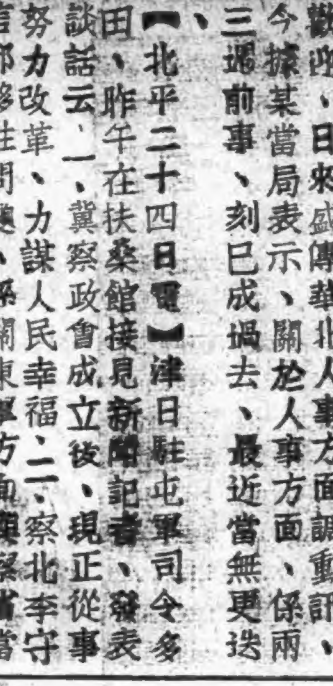 觀測、日來盛傳華北人事方面調動訊、
今據某當局表示、關於人事方面、係兩
三週前事、刻已成過去、最近當無更迭
、
【北平二十四日電】津日駐屯軍司令多
田、昨午在扶桑館接見新聞記者、發表
談話云、一、冀察政會成立後、現正從事
努力改革、力謀人民幸福、二、察北李守
信部移駐問題、係關東軍方面與察省當